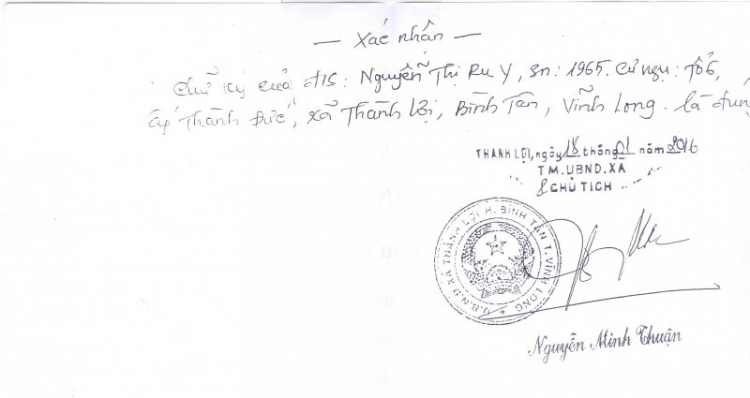 — Xác nhận —
Chữ ký của đ/s: Nguyễn Thị Ru Y, sn: 1965. Cư ngụ: Tổ 6,
ấp Thành Đức, xã Thành Lợi, Bình Tân, Vĩnh Long. là đún
THÀNH LỢI, ngày 18 tháng 01 năm 2016
TM.UBND.XÃ
CHỦ TỊCH
U.B.N.D XÃ THÀNH LỢI H. BÌNH TÂN T. VĨNH LONG
Nguyễn Minh Thuận